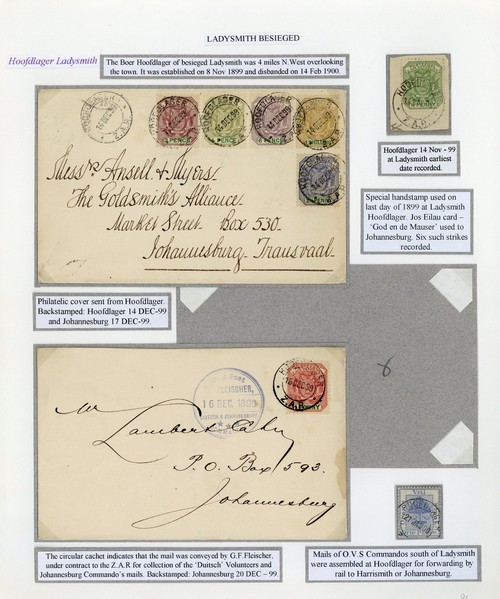 LADYSMITH BESIEGED
Hoofdlager Ladysmith
The Boer Hoofdlager of besieged Ladysmith was 4 miles N.West overlooking
the town. It was established on 8 Nov 1899 and disbanded on 14 Feb 1900.
HOOFDLAGER
Z.A.R.
HOOFDLAGER
Z.A.R.
PENCE
Hoofdlager 14 Nov - 99
at Ladysmith earliest
date recorded.
Messrs Ansell & Myers,
The Goldsmith's Alliance,
Market Street Box 530.
Johannesburg, Transvaal.
Special handstamp used on
last day of 1899 at Ladysmith
Hoofdlager. Jos Eilau card –
'God en de Mauser' used to
Johannesburg. Six such strikes
recorded.
Philatelic cover sent from Hoofdlager.
Backstamped: Hoofdlager 14 DEC-99
and Johannesburg 17 DEC-99.
FLEISCHER,
16 DEC. 1899
16 DEC 99
Z.A.R.
PENNY
Mr
Lambert Cahn
P.O. Box 593.
Johannesburg
The circular cachet indicates that the mail was conveyed by G.F.Fleischer,
under contract to the Z.A.R for collection of the 'Duitsch' Volunteers and
Johannesburg Commando's mails. Backstamped: Johannesburg 20 DEC – 99.
Mails of O.V.S Commandos south of Ladysmith
were assembled at Hoofdlager for forwarding by
rail to Harrismith or Johannesburg.